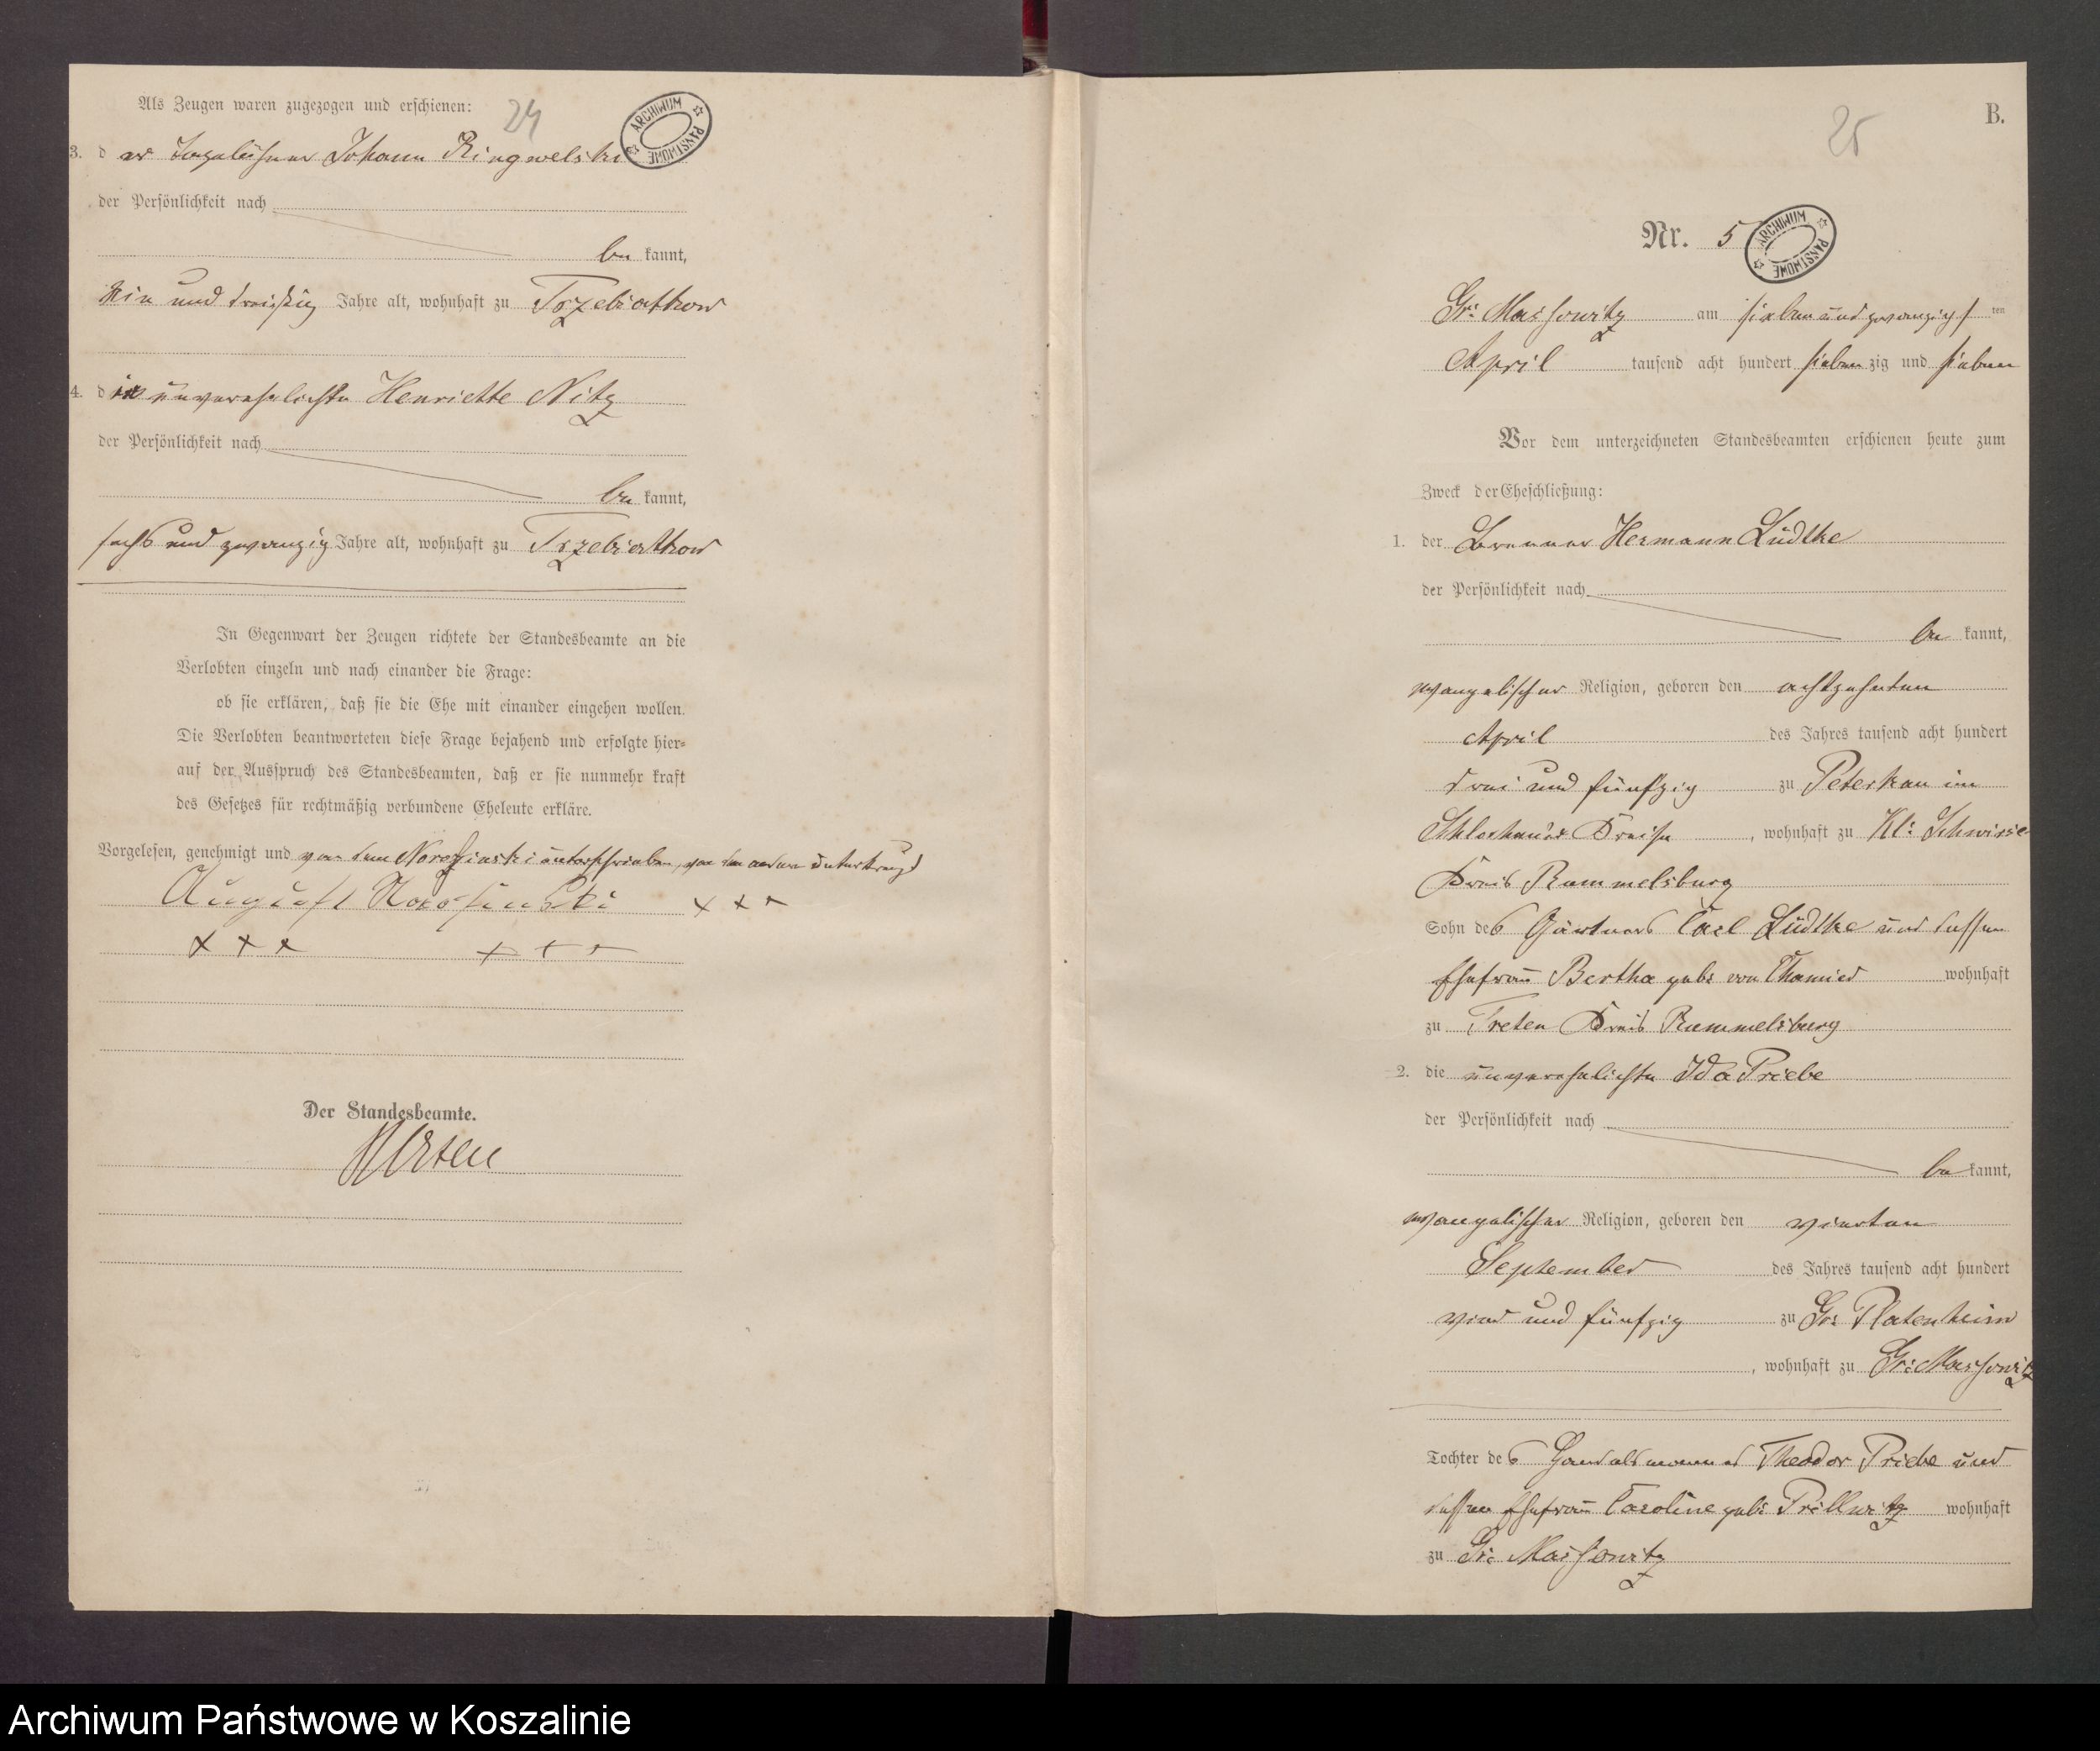 Als Zeugen waren zugezogen und erschienen:
24
ARCHIWUM PAŃSTWOWE
3. der Tagelöhner Johann Ringwelski
der Persönlichkeit nach
be kannt,
ein und dreißig Jahre alt, wohnhaft zu Trzebiatkow
4. die unverehelichte Henriette Nitz
der Persönlichkeit nach
be kannt,
sechs und zwanzig Jahre alt, wohnhaft zu Trzebiatkow
In Gegenwart der Zeugen richtete der Standesbeamte an die
Verlobten einzeln und nach einander die Frage:
ob sie erklären, daß sie die Ehe mit einander eingehen wollen.
Die Verlobten beantworteten diese Frage bejahend und erfolgte hier=
auf der Ausspruch des Standesbeamten, daß er sie nunmehr kraft
des Gesetzes für rechtmäßig verbundene Eheleute erkläre.
Vorgelesen, genehmigt und von dem unterschrieben, von den anderen unterkreuzt
August +++
+++ +++
Der Standesbeamte.
B.
25
Nr. 5
ARCHIWUM PAŃSTWOWE
Gr: Massowitz am sieben und zwanzigsten
April tausend acht hundert sieben zig und sieben
Vor dem unterzeichneten Standesbeamten erschienen heute zum
Zweck der Eheschließung:
1. der Brenner Hermann Lüdtke
der Persönlichkeit nach
be kannt,
evangelischer Religion, geboren den achtzehnten
April des Jahres tausend acht hundert
drei und fünfzig zu Peterkau im
Schlochauer Kreise, wohnhaft zu Kl: Schwirse
Kreis Rummelsburg
Sohn des Gärtners Carl Lüdtke und dessen
Ehefrau Bertha geb: von wohnhaft
zu Treten Kreis Rummelsburg
2. die unverehelichte Ida Priebe
der Persönlichkeit nach
be kannt,
evangelischer Religion, geboren den vierten
September des Jahres tausend acht hundert
vier und fünfzig zu Gr: Platenheim
, wohnhaft zu Gr: Massowitz
Tochter des Handelsmannes Theodor Priebe und
dessen Ehefrau Caroline geb: Prillwitz wohnhaft
zu Gr: Massowitz
Archiwum Państwowe w Koszalinie